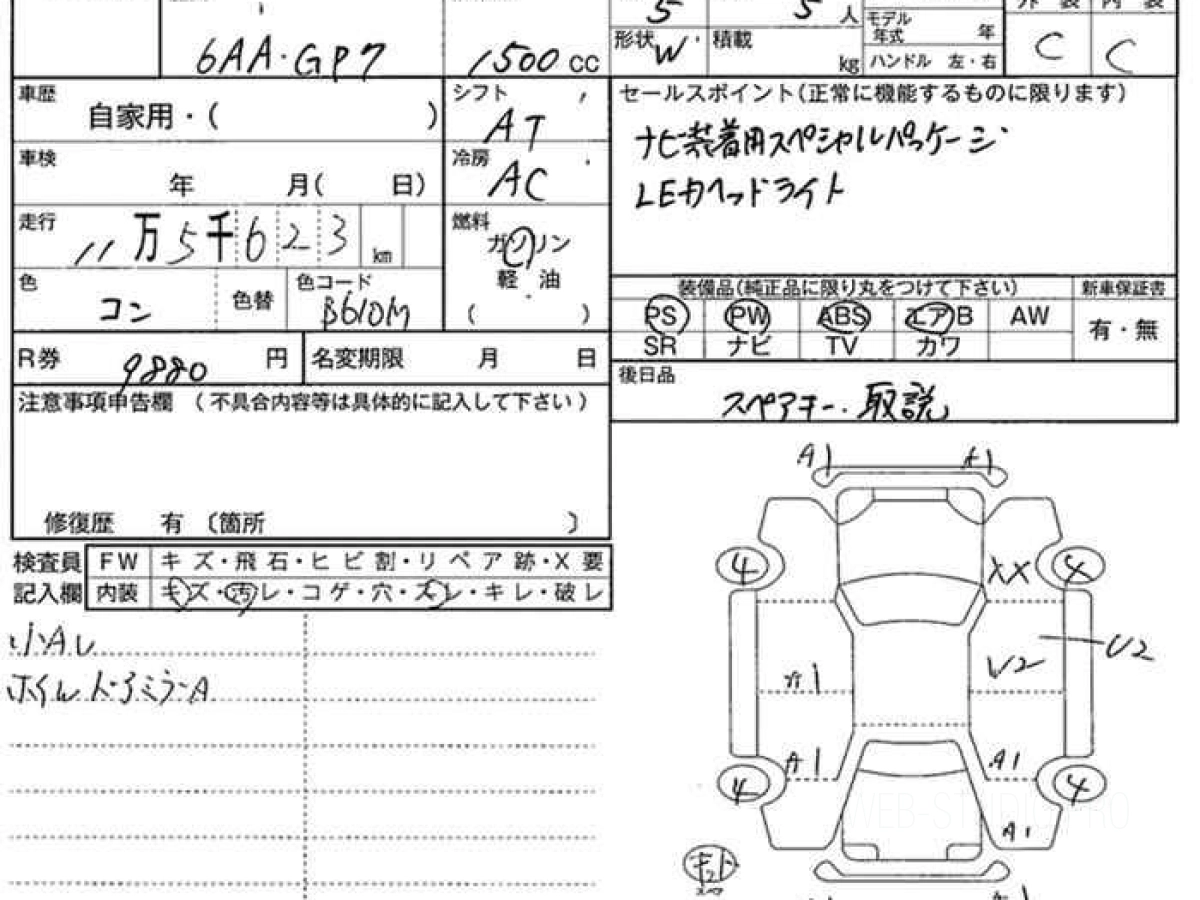 5 5 人
外装 内装
モデル年式 年
形状 W 積載 kg
6AA・GP7 1500 cc
ハンドル 左・右 C C
車歴 自家用・( )
シフト AT
セールスポイント(正常に機能するものに限ります)
ナビ装着用スペシャルパッケージ
LEDヘッドライト
車検 年 月( 日)
冷房 AC
走行 11万5千623 km
燃料 ガソリン
軽油
( )
色 コン 色替 色コード B610M
装備品(純正品に限り丸をつけて下さい) 新車保証書
PS PW ABS エアB AW 有・無
SR ナビ TV カワ
R券 9880 円 名変期限 月 日
後日品
スペアキー・取説
注意事項申告欄 (不具合内容等は具体的に記入して下さい)
修復歴 有 〔箇所 〕
検査員 FW キズ・飛石・ヒビ割・リペア跡・X要
記入欄 内装 キズ・汚レ・コゲ・穴・スレ・キレ・破レ
小Aレ
ホイルドアミラーA
A1 A1
4 XX 4
U2
A1 U2
A1 A1
4 4
A1
WEB-STUDIO.PRO